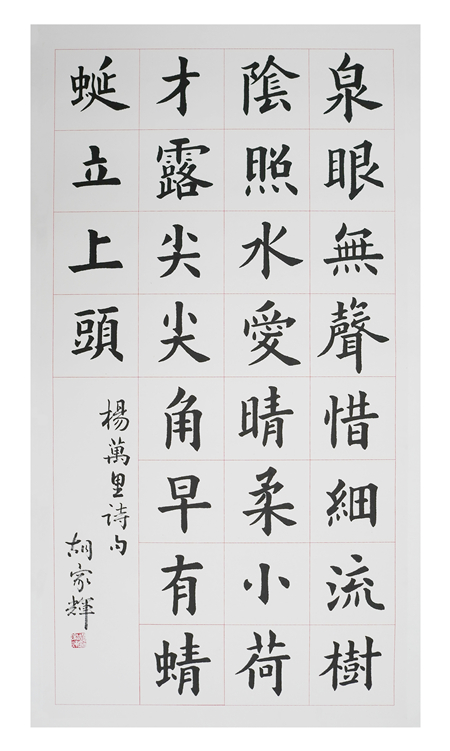 泉眼無聲惜細流樹
陰照水愛晴柔小荷
才露尖尖角早有蜻
蜓立上頭
楊萬里诗句
胡家輝